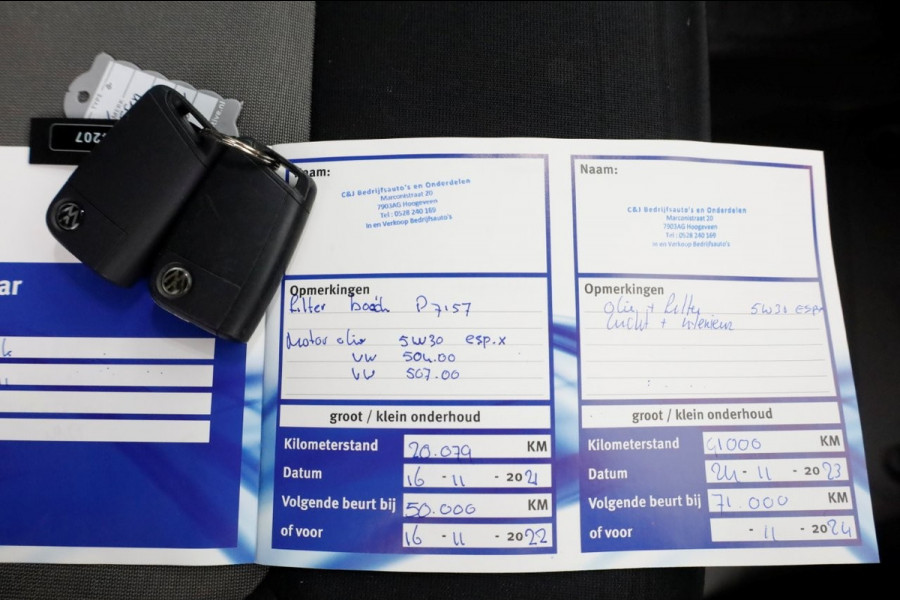 207
ar
Naam:
C&J Bedrijfsauto's en Onderdelen
Marconistraat 20
7903AG Hoogeveen
Tel : 0528 240 169
In en Verkoop Bedrijfsauto's
Opmerkingen
Filter bosch P7157
Motor olie 5W30 esp.x
VW 504.00
VW 507.00
groot / klein onderhoud
Kilometerstand 20.079 KM
Datum 16 - 11 - 2021
Volgende beurt bij 50.000 KM
of voor 16 - 11 - 2022
Naam:
C&J Bedrijfsauto's en Onderdelen
Marconistraat 20
7903AG Hoogeveen
Tel : 0528 240 169
In en Verkoop Bedrijfsauto's
Opmerkingen
olie + filter 5W30 esp.x
lucht + interieur
groot / klein onderhoud
Kilometerstand 41000 KM
Datum 24 - 11 - 2023
Volgende beurt bij 71.000 KM
of voor - 11 - 2024